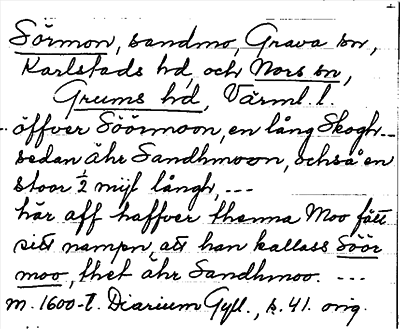 Sörmon, sandmo, Grava sn,
Karlstads hd, och Nors sn,
Grums hd, Värml. l.
-- öffver Söörmoon, en lång Skogh --
sedan ähr Sandhmoon, ochså en
stoor ½ mijl långh, ---
här aff haffver thenna Moo fått
sitt nampn, att han kallass Söör
moo, thet ähr Sandhmoo. ---
m. 1600-t. Diarium Gyll., s. 41. orig.